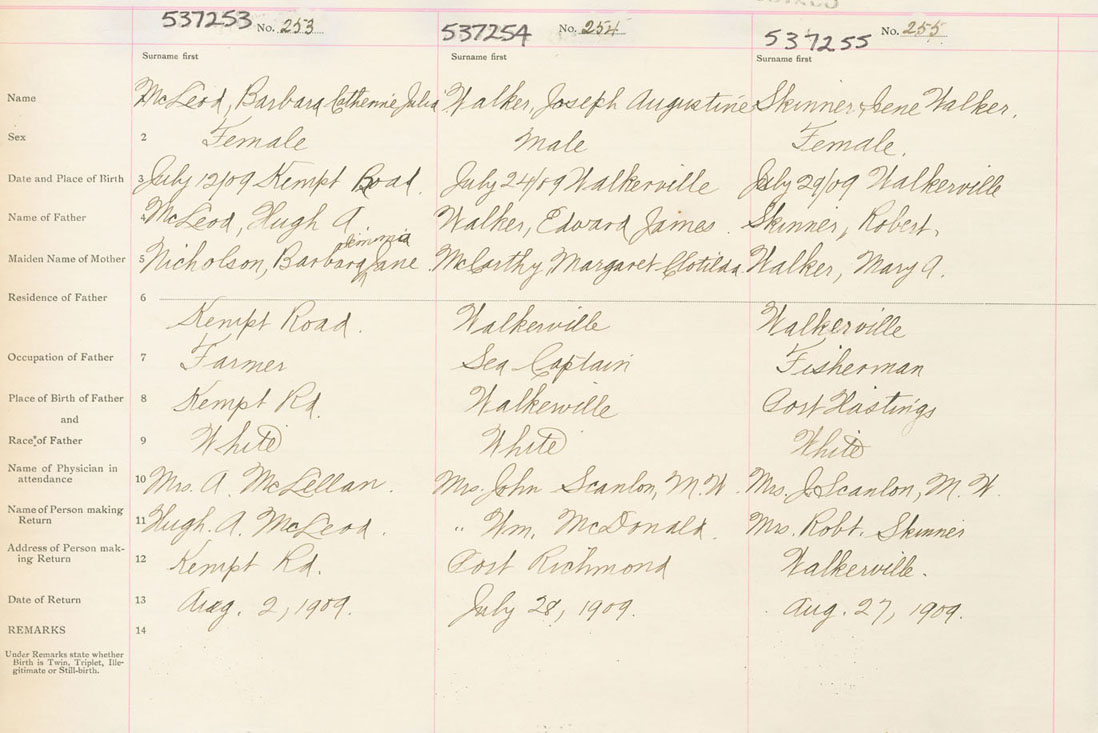 537253 No. 253 537254 No. 254 537255 No. 255
Surname first Surname first Surname first
Name McLeod, Barbara Catherine Julia Walker, Joseph Augustine Skinner, Irene Walker.
Sex 2 Female Male Female.
Date and Place of Birth 3 July 12/09 Kempt Road. July 24/09 Walkerville July 29/09 Walkerville
Name of Father 4 McLeod, Hugh A. Walker, Edward James. Skinner, Robert,
Jemima
Maiden Name of Mother 5 Nicholson, Barbara Jane McCarthy, Margaret Clotilda Walker, Mary A.
Residence of Father 6
Kempt Road. Walkerville Walkerville
Occupation of Father 7 Farmer Sea Captain Fisherman
Place of Birth of Father 8 Kempt Rd. Walkerville Port Hastings
and
Race of Father 9 White White White
Name of Physician in
attendance 10 Mrs. A. McLellan. Mrs. John Scanlon, M.W. Mrs. J. Scanlon, M.W.
Name of Person making
Return 11 Hugh. A. McLeod. " Wm. McDonald. Mrs. Robt. Skinner
Address of Person mak-
ing Return 12 Kempt Rd. Port Richmond Walkerville.
Date of Return 13 Aug. 2, 1909. July 28, 1909. Aug. 27, 1909.
REMARKS 14
Under Remarks state whether
Birth is Twin, Triplet, Ille-
gitimate or Still-birth.